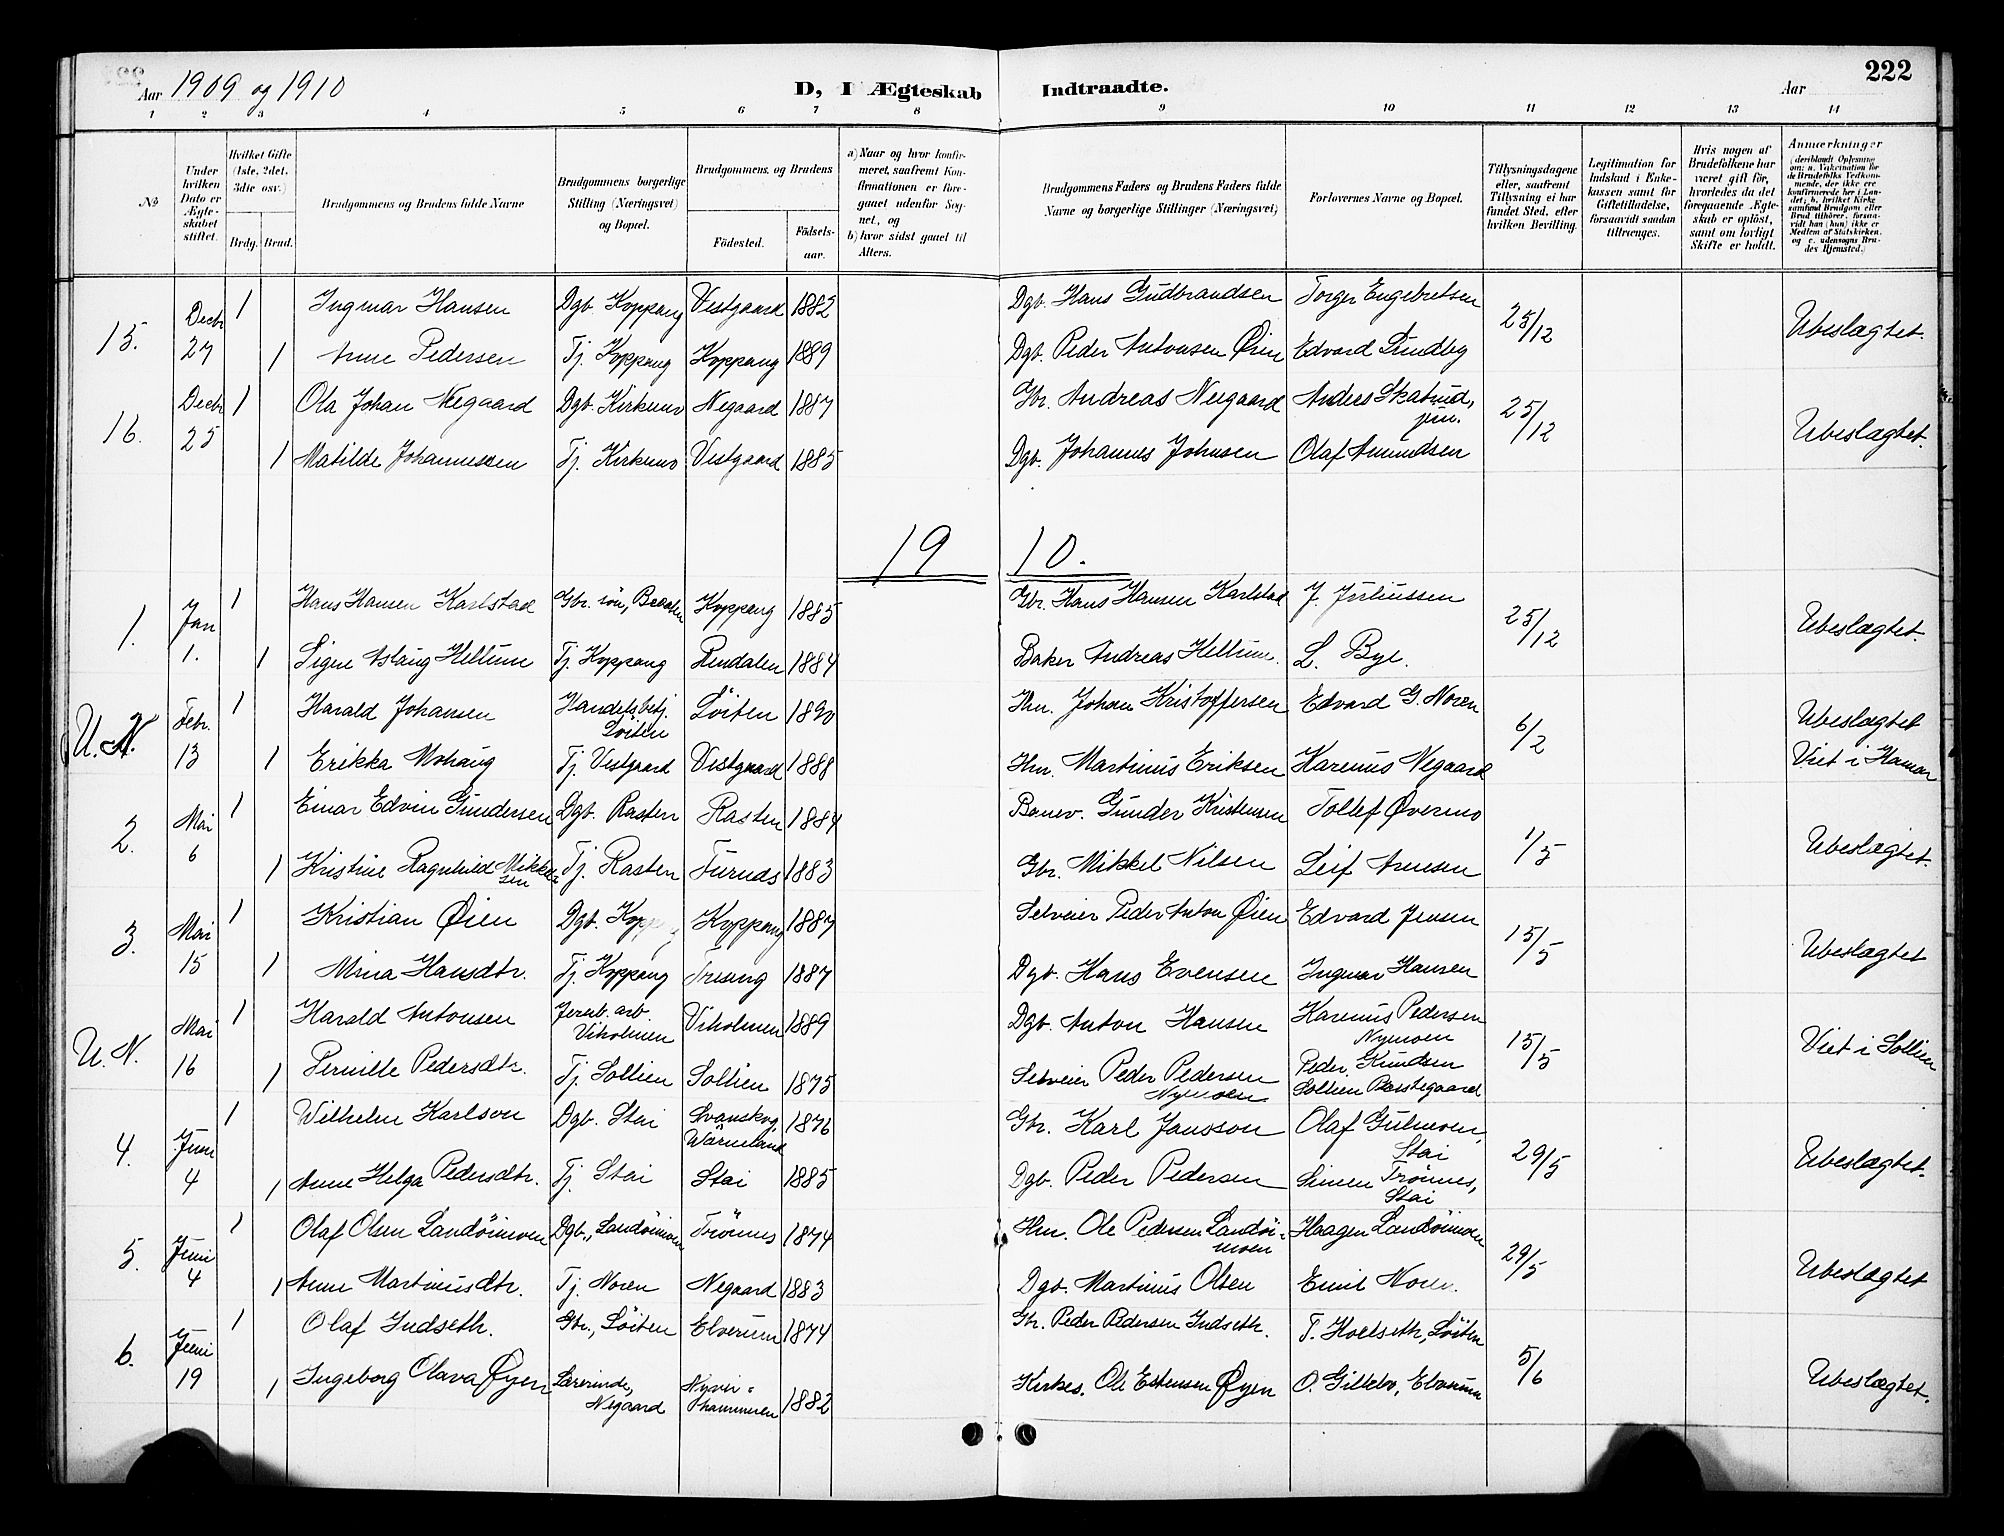 Aar 1909 og 1910
D, I Ægteskab Indtraadte.
Aar
222
1 2 3 4 5 6 7 8 9 10 11 12 13 14
No
Under hvilken Dato er Ægteskabet stiftet.
Hvilket Gifte (1ste, 2det, 3die osv.)
Brdg. Brud.
Brudgommens og Brudens fulde Navne
Brudgommens borgerlige Stilling (Næringsvei) og Bopæl.
Brudgommens og Brudens
Fødested.
Fødselsaar.
a) Naar og hvor konfirmeret, saafremt Konfirmationen er foregaaet udenfor Sognet, og
b) hvor sidst gaaet til Alters.
Brudgommens Faders og Brudens Faders fulde Navne og borgerlige Stillinger (Næringsvei)
Forlovernes Navne og Bopæl.
Tillysningsdagene eller, saafremt Tillysning ei har fundet Sted, efter hvilken Bevilling.
Legitimation for Indskud i Enkekassen samt for Giftetilladelse, forsaavidt saadan tiltrænges.
Hvis nogen af Brudefolkene har været gift før, hvorledes da det foregaaende Ægteskab er opløst, samt om lovligt Skifte er holdt.
Anmærkninger
(deriblandt Oplysning om: a. Vakcination for de Brudefolks Vedkommende, der ikke ere konfirmerede her i Landet; b. hvilket Kirkesamfund Brudgom eller Brud tilhører, forsaavidt han (hun) ikke er Medlem af Statskirken, og c. udensogns Brudes Hjemsted.)
15. Decbr 27 1 Ingmar Hansen Dgb. Koppang Vestgaard 1882 Dgb. Hans Gudbrandsen Torger Engebretsen 25/12 Ubeslægtet.
1 Anne Pedersen Tj. Koppang Koppang 1889 Dgb. Peder Antonsen Øien Edvard Sundby
16. Decbr 25 1 Ola Johan Negaard Dgb. Kirkemo Negaard 1887 Gbr. Andreas Negaard Anders Skatrud, jun. 25/12 Ubeslægtet.
1 Matilde Johannessen Tj. Kirkemo Vestgaard 1885 Dgb. Johannes Johnsen Olaf Amundsen
1910.
1. Jan 1. 1 Hans Hansen Karlstad Gbr. søn, Braaten Koppang 1885 Gbr. Hans Hansen Karlstad J. Juliussen 25/12 Ubeslægtet.
1 Signe Aslaug Hellum Tj. Koppang Rendalen 1884 Baker Andreas Hellum. L. Bye.
U. N. Febr. 13 1 Harald Johansen Handelsbetj. Löiten Löiten 1890 Hm. Johan Kristoffersen Edvard G. Noren 6/2 Ubeslægtet
1 Erikka Mohaug Tj. Vestgaard Vestgaard 1888 Hm. Martinus Eriksen Karenus Negaard Viet i Hamar
2. Mai 6 1 Einar Edvin Gundersen Dgb. Rasten Rasten 1884 Banev. Gunder Kristensen Tollef Øvermo 1/5 Ubeslægtet.
1 Kristine Ragnhild Mikkelsen Tj. Rasten Furnæs 1883 Gbr. Mikkel Nilsen Leif Arnesen
3. Mai 15 1 Kristian Øien Dgb. Koppang Koppang 1887 Selveier Peder Anton Øien Edvard Jensen 15/5 Ubeslægtet
1 Mina Hansdtr. Tj. Koppang Trysung 1887 Dgb. Hans Evensen Ingmar Hansen
U. N. Mai 16 1 Harald Antonsen Jernb. arb. Viholmen Viholmen 1889 Dgb. Anton Hansen Karenus Pedersen Nymoen 15/5 Viet i Sollien
1 Pernille Pedersdtr. Tj. Sollien Sollien 1875 Selveier Peder Pedersen Nymoen Peder Knudsen Sollien Prestegaard
4. Juni 4 1 Wilhelm Karlson Dgb. Stai Svanskog, Wärmland 1876 Gbr. Karl Jansson Olaf Gulmoen, Stai 29/5 Ubeslægtet.
1 Anne Helga Pedersdtr. Tj. Stai Stai 1885 Dgb. Peder Pedersen Simen Trønnes, Stai
5. Juni 4 1 Olaf Olsen Landöimoen Dgb., Landöimoen Trönnes 1874 Hm. Ole Pedersen Landöimoen Haagen Landöimoen 29/5 Ubeslægtet
1 Anne Martinusdtr. Tj. Noren Negaard 1883 Dgb. Martinus Olsen Emil Noren.
6. Juni 19 1 Olaf Indseth. Gbr., Löiten Elverum 1874 Gbr. Peder Pedersen Indseth. T. Hoelseth, Löiten 5/6 Ubeslægtet.
1 Ingeborg Olava Øyen Lærerinde, Negaard 1882 Kirkes. Ole Estensen Øyen O. Gillebo, Elverum